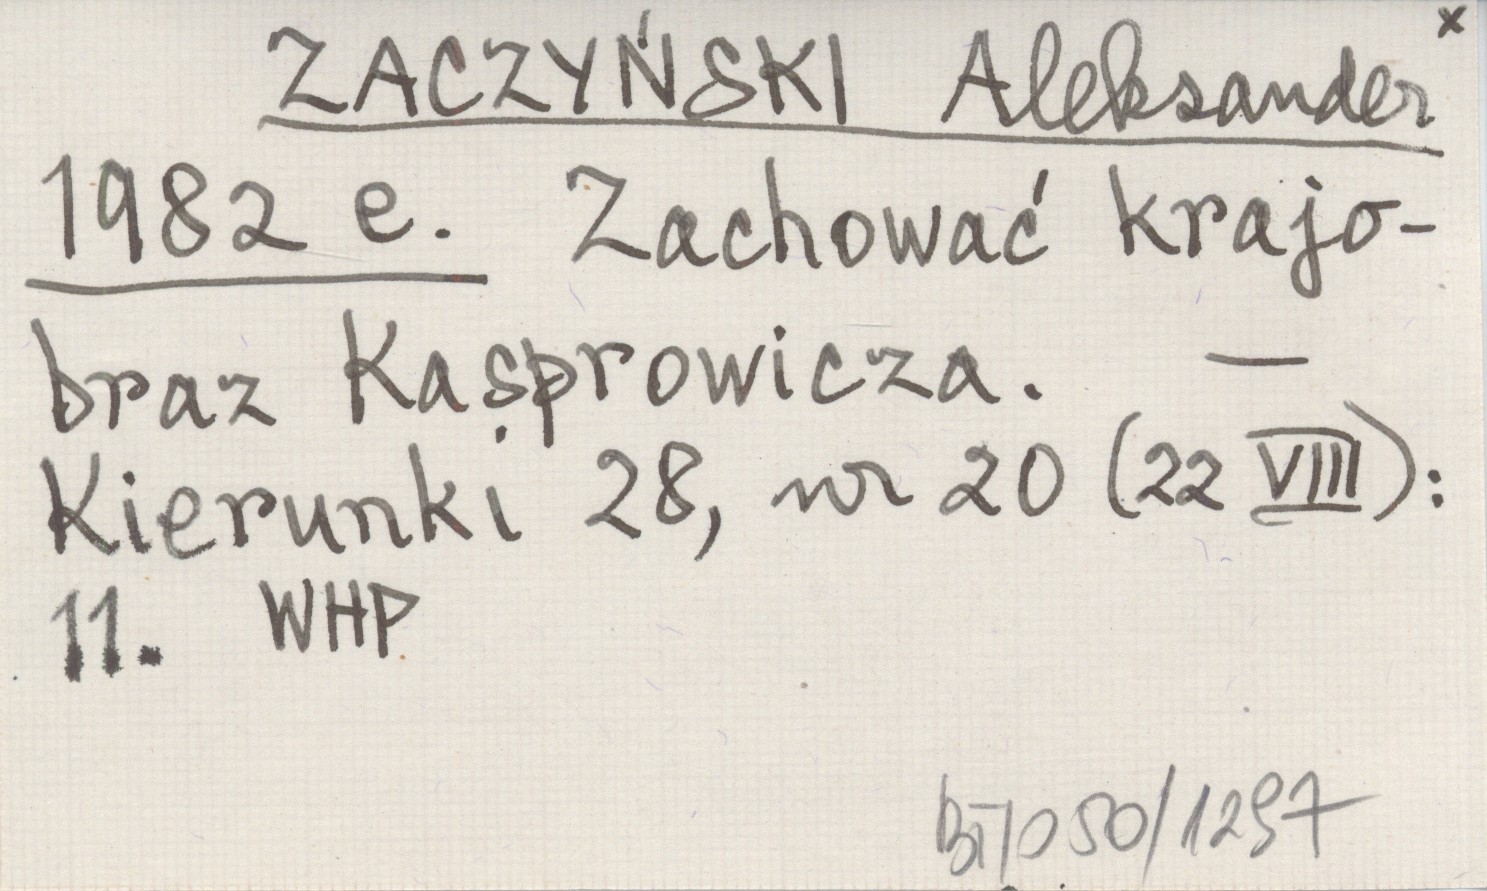 x
ZACZYŃSKI Aleksander
1982 e. Zachować krajo-
braz Kasprowicza. —
Kierunki 28, nr 20 (22 VIII):
11. WHP
050/1297